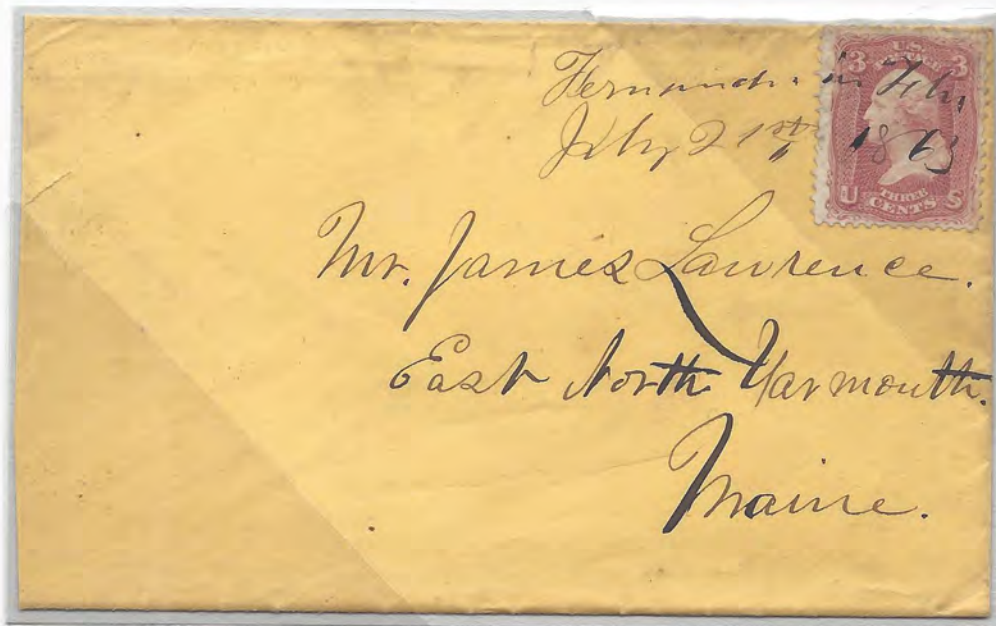 Fernandina Fla
July 21st 1863
3 U.S. POSTAGE 3
U THREE CENTS S
Mr. James Lawrence.
East North Yarmouth.
Maine.